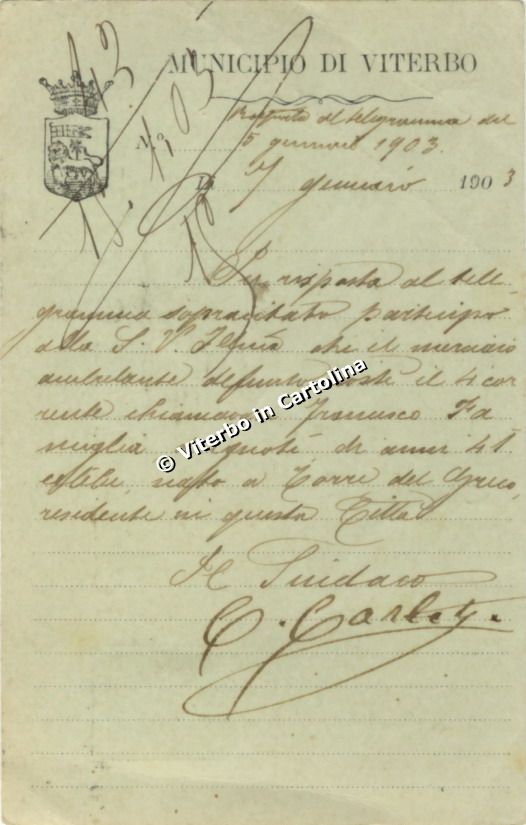 MUNICIPIO DI VITERBO
N.o
Risposta al telegramma del
5 gennaio 1903.
7 gennaio 1903
In risposta al tele-
gramma sopracitato partecipo
alla S. V. Illma che il merciaio
ambulante defunto costì il 4 cor
rente chiamavasi Francesco Fa
miglia ignoti, di anni 41
celibe, nato a Torre del Greco,
residente in questa Città
Il Sindaco
© Viterbo in Cartolina